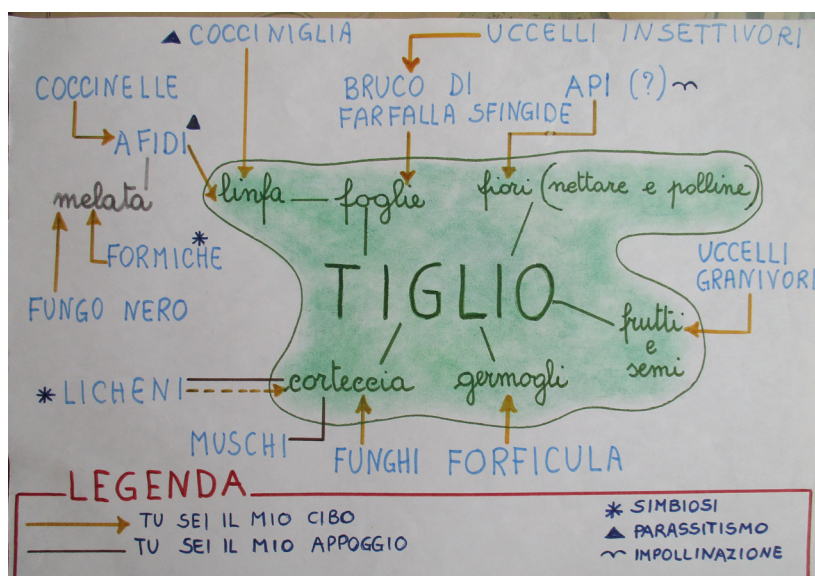 COCCINIGLIA
UCCELLI INSETTIVORI
COCCINELLE
BRUCO DI
FARFALLA SFINGIDE
API (?)
AFIDI
melata
linfa
foglie
fiori (nettare e polline)
FORMICHE
UCCELLI
GRANIVORI
FUNGO NERO
TIGLIO
frutti
e
semi
LICHENI
corteccia
germogli
MUSCHI
FUNGHI
FORFICULA
LEGENDA
TU SEI IL MIO CIBO
TU SEI IL MIO APPOGGIO
SIMBIOSI
PARASSITISMO
IMPOLLINAZIONE